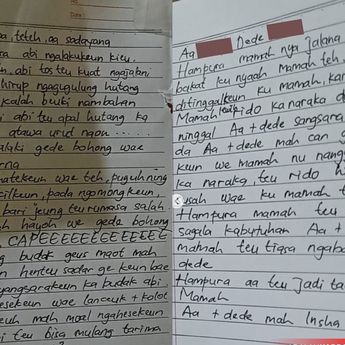 Date :
teteh, aa sadayana
abi ngalakukeun kieu,
abi tos teu kuat ngajalani
hirup ngagugulung hutang
kalah beuki nambahan
abi teu apal hutang ka
atawa urut naon ......
gede bohong wae
wae teh, puguh ning
pada ngomongkeun,
bari jeung teu rumasa salah
hayoh we gede bohong
CAPEEEEEEEEEEEEE
budak geus maot mah
hentu sadar ge keun bae
ka budak abi
wae lanceuk + kolot
mah moal ngahesekeun
teu bisa mulang tarima
Aa Dede
Hampura mamah nya jalana
bakat ku nyaah mamah teh,
ditinggalkeun ku mamah, kar
Mamah rido ka naraka d
ninggal Aa + dede sangsara
da Aa + dede mah can g
keun we mamah nu nang
ka naraka, teu rido h
usah wae ku mamah t
Hampura mamah teu
sagala kabutuhan Aa +
mamah teu tiasa ngab
dede
Hampura aa teu jadi ta
Mamah
Aa + dede mah Insha